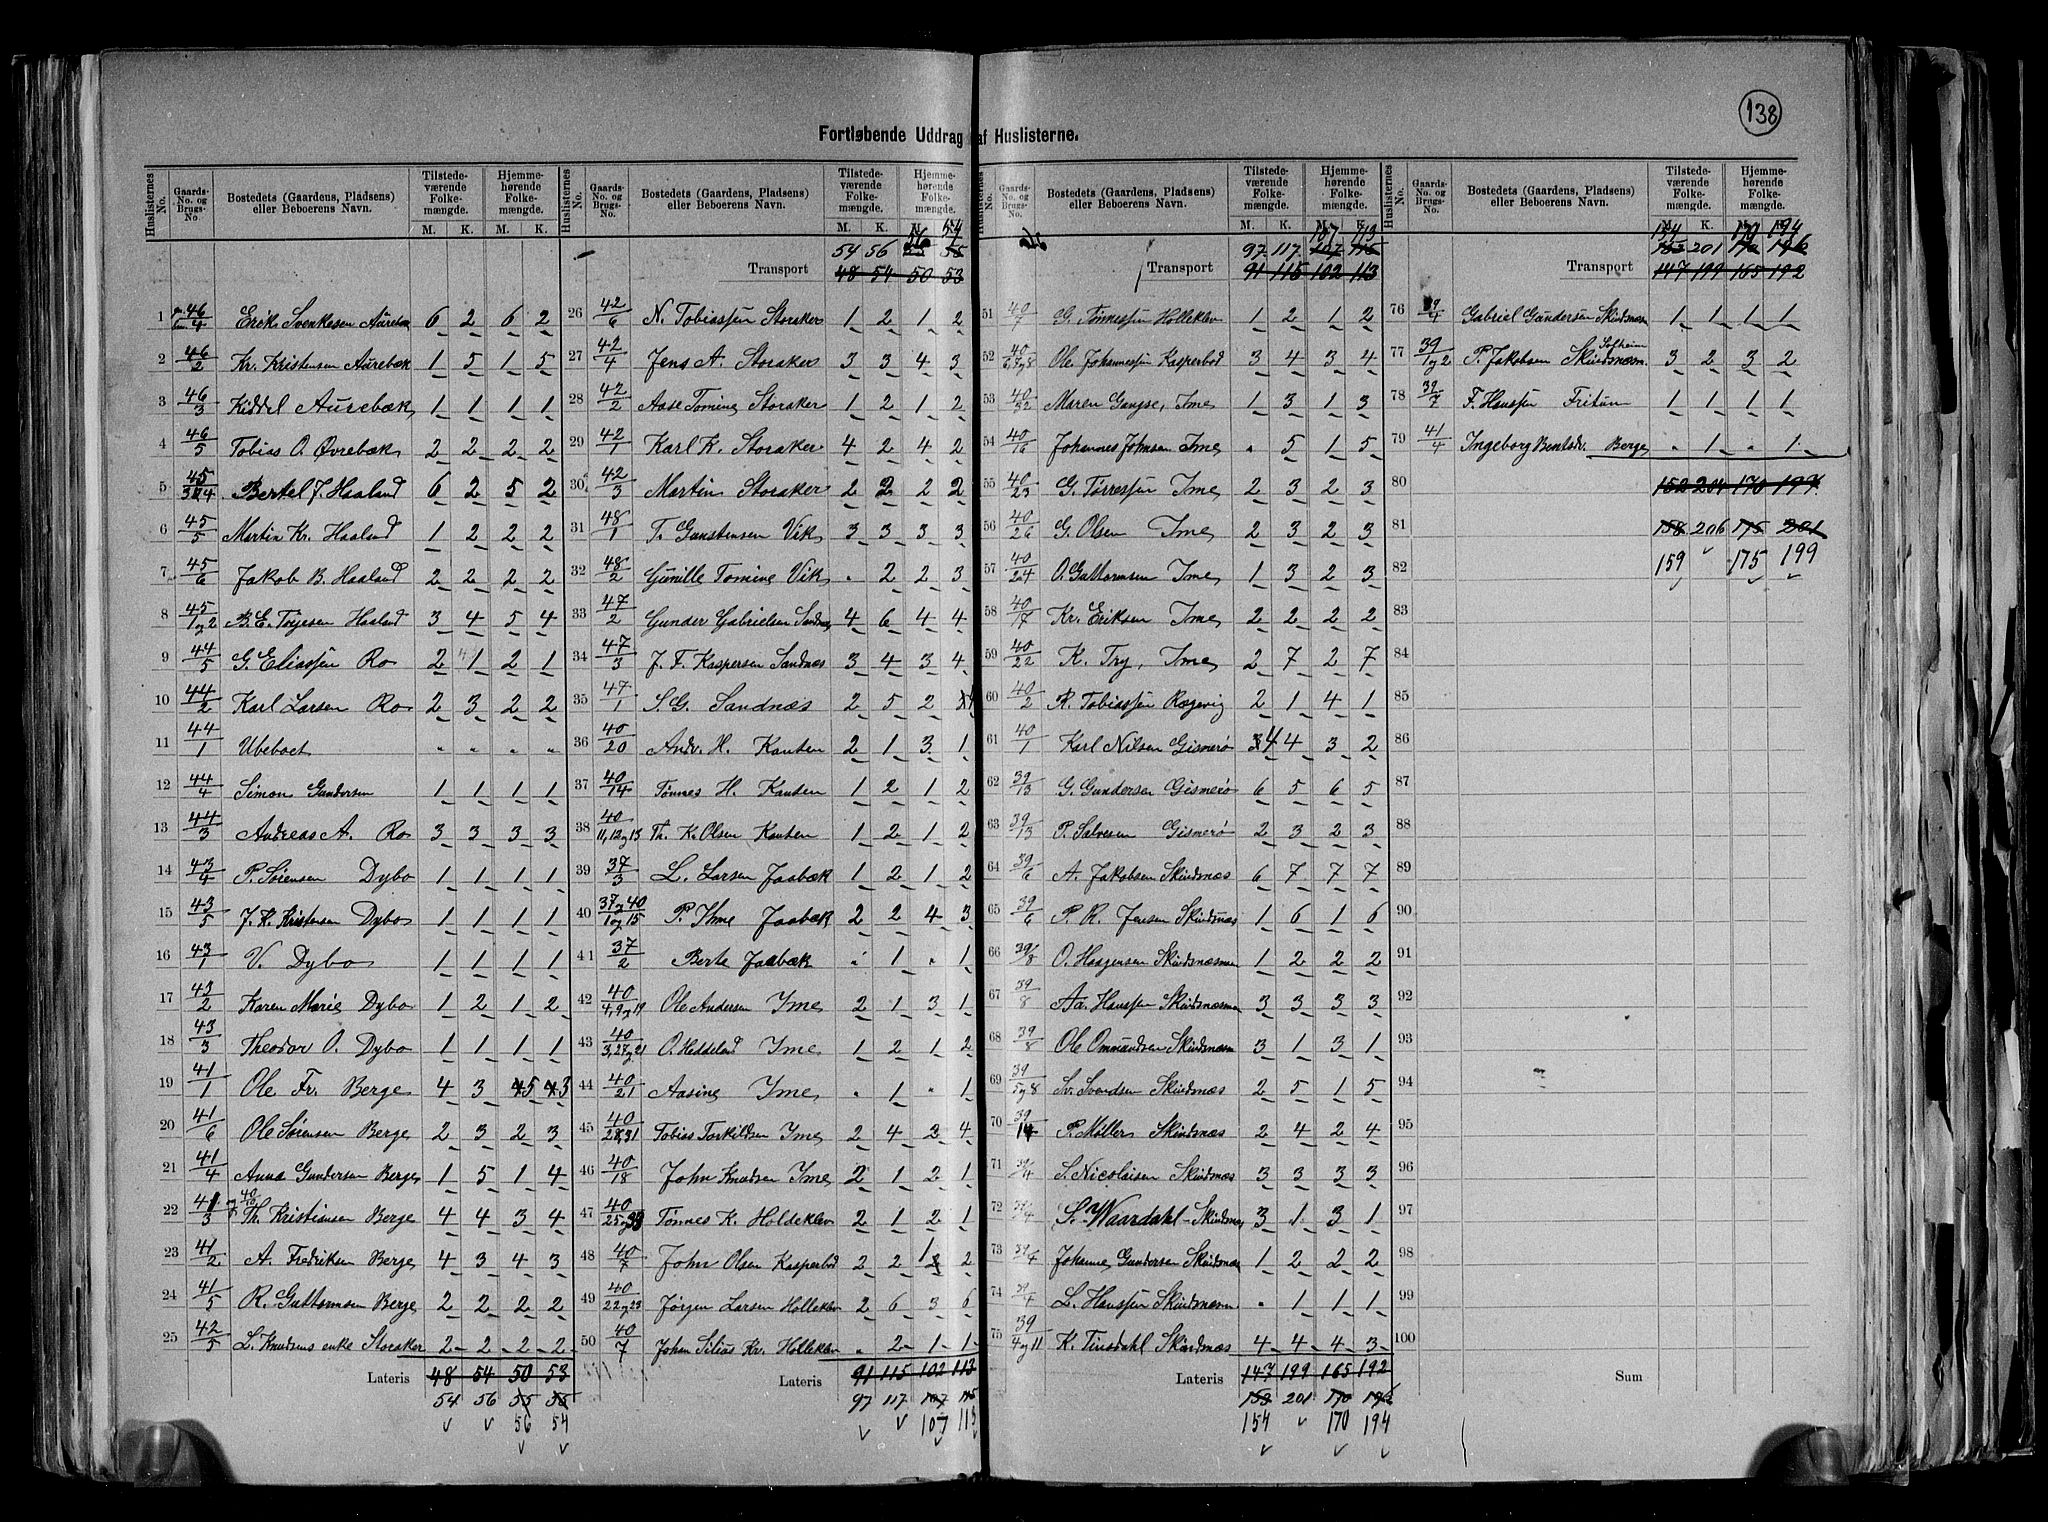 138
Fortløbende Uddrag af Huslisterne.
Huslisternes No. | Gaards-No. og Brugs-No. | Bostedets (Gaardens, Pladsens) eller Beboerens Navn. | Tilstedeværende Folkemængde. M. K. | Hjemmehørende Folkemængde. M. K.
1 46/4 Erik Svenkesen Aurebæk 6 2 6 2
2 46/2 Kr. Kristensen Aurebæk 1 5 1 5
3 46/3 Kiddel Aurebæk 1 1 1 1
4 46/5 Tobias O. Øvrebæk 2 2 2 2
5 45/3og4 Bertel J. Haaland 6 2 5 2
6 45/5 Martin Kr. Haaland 1 2 2 2
7 45/6 Jakob B. Haaland 2 2 2 2
8 45/1og2 B. E. Torjesen Haaland 3 4 5 4
9 44/5 G. Eliassen Ro 2 1 2 1
10 44/2 Karl Larsen Ro 2 3 2 2
11 44/1 Ubeboet " " " "
12 44/4 Simon Gundersen 1 1 1 1
13 44/3 Andreas A. Ro 3 3 3 3
14 43/4 P. Sørensen Dybo 1 1 1 1
15 43/5 J. K. Kristensen Dybo 1 1 1 1
16 43/1 V. Dybo 1 1 1 1
17 43/2 Karen Marie Dybo 1 2 1 2
18 43/3 Theodor O. Dybo 1 1 1 1
19 41/1 Ole Fr. Berge 4 3 5 3
20 41/6 Ole Sørensen Berge 2 3 2 3
21 41/4 Anna Gundersen Berge 1 5 1 4
22 41/3 Th. Kristiansen Berge 4 4 3 4
23 41/2 A. Fredriksen Berge 4 3 4 3
24 41/5 R. Guttormsen Berge 2 2 2 2
25 42/5 L. Knudsens enke Storaker 2 2 2 2
Lateris 48 54 50 53
54 56 55 55
56 54
Huslisternes No. | Gaards-No. og Brugs-No. | Bostedets (Gaardens, Pladsens) eller Beboerens Navn. | Tilstedeværende Folkemængde. M. K. | Hjemmehørende Folkemængde. M. K.
56 54
54 56 55 55
Transport 48 54 50 53
26 42/6 N. Tobiassen Storaker 1 2 1 2
27 42/4 Jens A. Storaker 3 3 4 3
28 42/2 Aase Tomine Storaker 1 2 1 2
29 42/1 Karl K. Storaker 4 2 4 2
30 42/3 Martin Storaker 2 2 2 2
31 48/1 T. Gunstensen Vik 3 3 3 3
32 48/2 Gunille Tomine Vik . 2 2 3
33 47/2 Gunder Gabrielsen Sandnæs 4 6 4 4
34 47/3 J. F. Kaspersen Sandnæs 3 4 3 4
35 47/1 S. G. Sandnæs 2 5 2 4
36 40/20 Andr. H. Kauten 2 1 3 1
37 40/14 Tønnes H. Kauten 1 2 1 2
38 40/11,12og13 Th. K. Olsen Kauten 1 2 1 2
39 37/3 L. Larsen Jaabæk 1 2 1 2
40 37og40/1og15 P. Ime Jaabæk 2 2 4 3
41 37/2 Berte Jaabæk " 1 " 1
42 40/4,9og19 Ole Andersen Ime 2 1 3 1
43 40/3,27og21 O. Heddeland Ime 1 2 1 2
44 40/21 Aasine Ime . 1 " 1
45 40/28,31 Tobias Torkildsen Ime 2 4 2 4
46 40/18 John Knudsen Ime 2 1 2 1
47 40/25og33 Tønnes K. Holdeklev 2 1 2 1
48 40/7 John Olsen Kasperbod 2 2 1 2
49 40/22og23 Jørgen Larsen Holleklev 2 6 3 6
50 40/7 Johan Silius Kr. Holleklev . 2 1 1
Lateris 91 115 102 113
97 117 107 115
107 113
Huslisternes No. | Gaards-No. og Brugs-No. | Bostedets (Gaardens, Pladsens) eller Beboerens Navn. | Tilstedeværende Folkemængde. M. K. | Hjemmehørende Folkemængde. M. K.
107 113
97 117 107 115
Transport 91 115 102 113
51 40/7 G. Tønnessen Holleklev 1 2 1 2
52 40/6,7og8 Ole Johannessen Kasperbod 3 4 3 4
53 40/32 Maren Gangse, Ime 1 3 1 3
54 40/16 Johannes Johnsen Ime . 5 1 5
55 40/23 G. Tørressen Ime 2 3 2 3
56 40/26 G. Olsen Ime 2 3 2 3
57 40/24 O. Guttormsen Ime 1 3 2 3
58 40/17 Kr. Eriksen Ime 2 2 2 2
59 40/22 K. Try, Ime 2 7 2 7
60 40/2 R. Tobiassen Rogevig 2 1 4 1
61 40/1 Karl Nilsen Gismerø 4 4 3 2
62 39/13 G. Gundersen Gismerø 6 5 6 5
63 39/13 P. Salvesen Gismerø 2 3 2 3
64 39/6 A. Jakobsen Skindsnæs 6 7 7 7
65 39/6 P. R. Jensen Skindsnæs 1 6 1 6
66 39/8 O. Haagensen Skindsnæsmn 1 2 2 2
67 39/8 Aa. Hanssen Skindsnæsmn 3 3 3 3
68 39/8 Ole Ommundsen Skindsnæsm 3 1 3 1
69 39/5og8 Sv. Svendsen Skindsnæs 2 5 1 5
70 39/14 P. Møller Skindsnæs 2 4 2 4
71 39/4 S. Nicolaisen Skindsnæs 3 3 3 3
72 39/4 S. Waardahl Skindsnæs 3 1 3 1
73 39/4 Johanne Gundersen Skindsnæs 1 2 2 2
74 39/4 L. Hanssen Skindsnæsm . 1 1 1
75 39/4og11 K. Tinsdahl Skindsnæs 4 4 4 3
Lateris 147 199 165 192
153 201 170 196
154 170 194
Huslisternes No. | Gaards-No. og Brugs-No. | Bostedets (Gaardens, Pladsens) eller Beboerens Navn. | Tilstedeværende Folkemængde. M. K. | Hjemmehørende Folkemængde. M. K.
154 170 194
153 201 170 196
Transport 147 199 165 192
76 39/4 Gabriel Gundersen Skindsnæsm 1 1 1 1
77 39/1og2 P. Jakobsen Skindsnæsm. Solheim 3 2 3 2
78 39/7 F. Hanssen Fritun 1 1 1 1
79 41/4 Ingeborg Bentsdr. Berge " 1 " 1
80 152 204 170 197
81 158 206 175 201
82 159 175 199
83
84
85
86
87
88
89
90
91
92
93
94
95
96
97
98
99
100
Sum